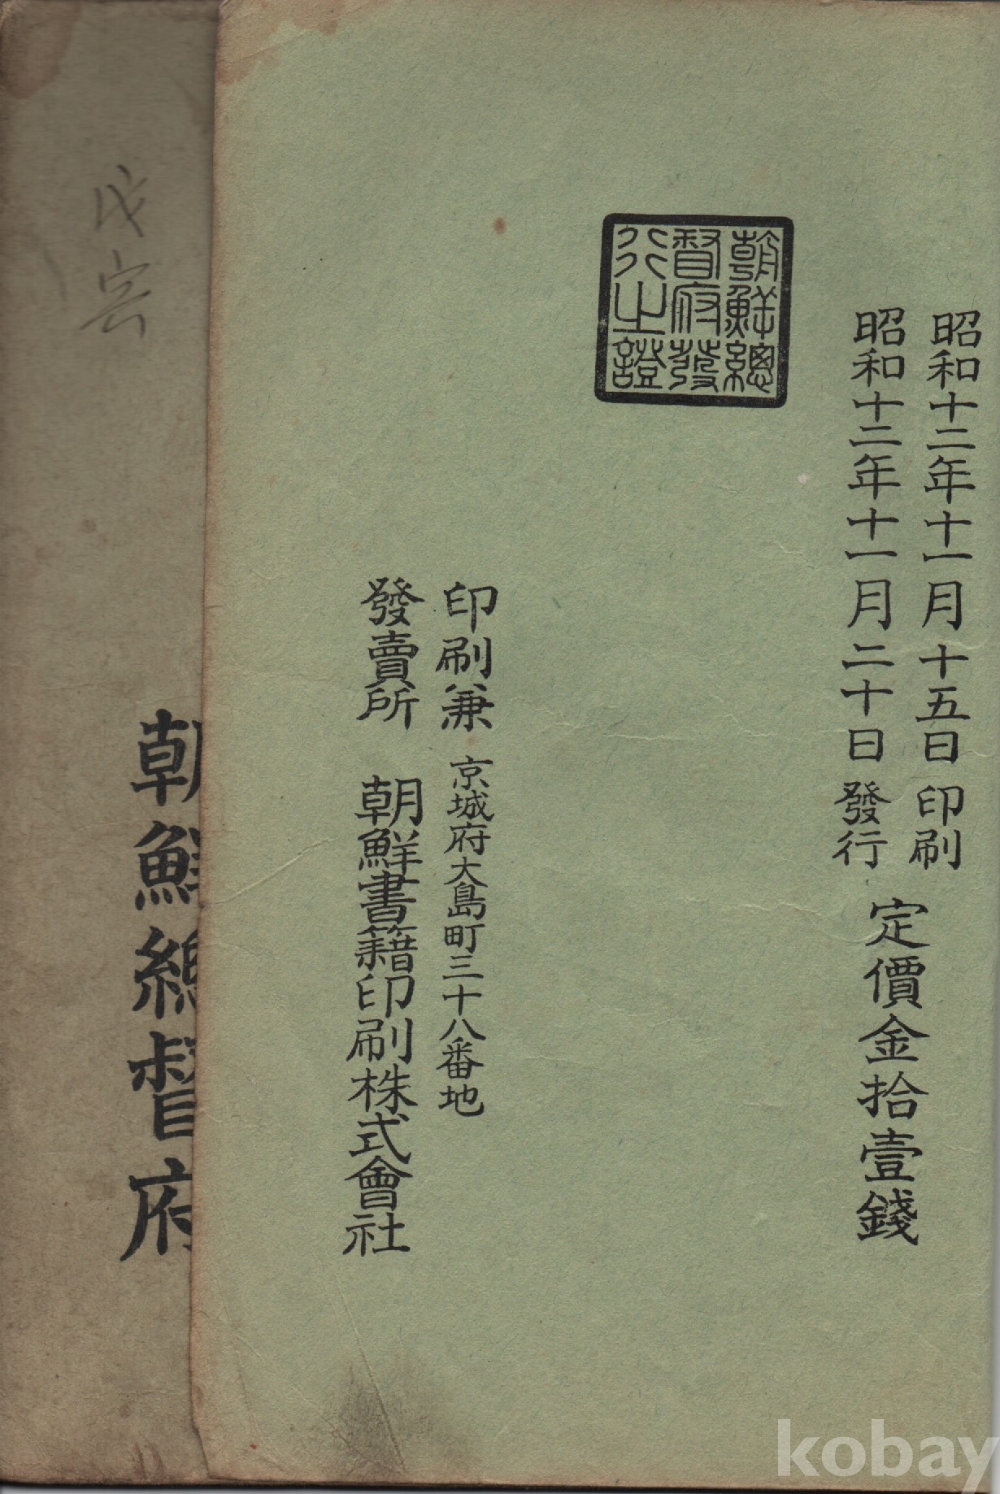 昭和十二年十一月十五日印刷
昭和十二年十一月二十日發行
定價金拾壹錢
朝鮮總
督府發
行之證
印刷兼
發賣所
京城府大島町三十八番地
朝鮮書籍印刷株式會社
朝鮮總督府
戊寅
kobay